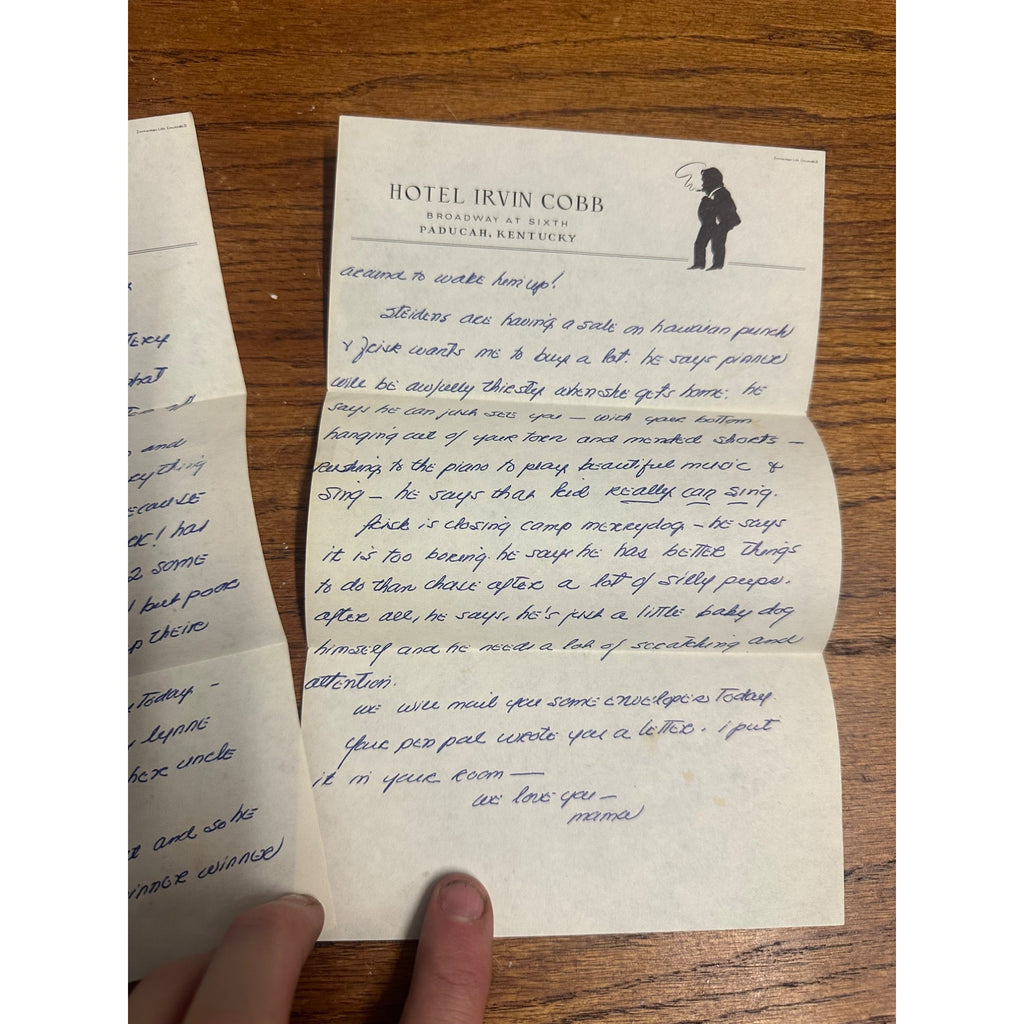 TERY
what
and
rything
ECAUSE
CK! has
2 SOME
but poor
p their
Today –
lynne
her uncle
and so he
INNER WINNER
HOTEL IRVIN COBB
BROADWAY AT SIXTH
PADUCAH, KENTUCKY
around to wake him up!
Steidens are having a sale on hawaiian punch
& Frisk wants me to buy a lot. he says pinner
will be awfully thirsty when she gets home. he
says he can just see you — with your bottom
hanging out of your torn and mended shorts —
rushing to the piano to play beautiful music &
sing — he says that kid really can sing.
Frisk is closing camp merrydog — he says
it is too boring. he says he has better things
to do than chase after a lot of silly pups.
after all, he says, he's just a little baby dog
himself and he needs a lot of scratching and
attention.
we will mail you some envelopes today
your pen pal wrote you a letter. i put
it in your room —
we love you —
mama